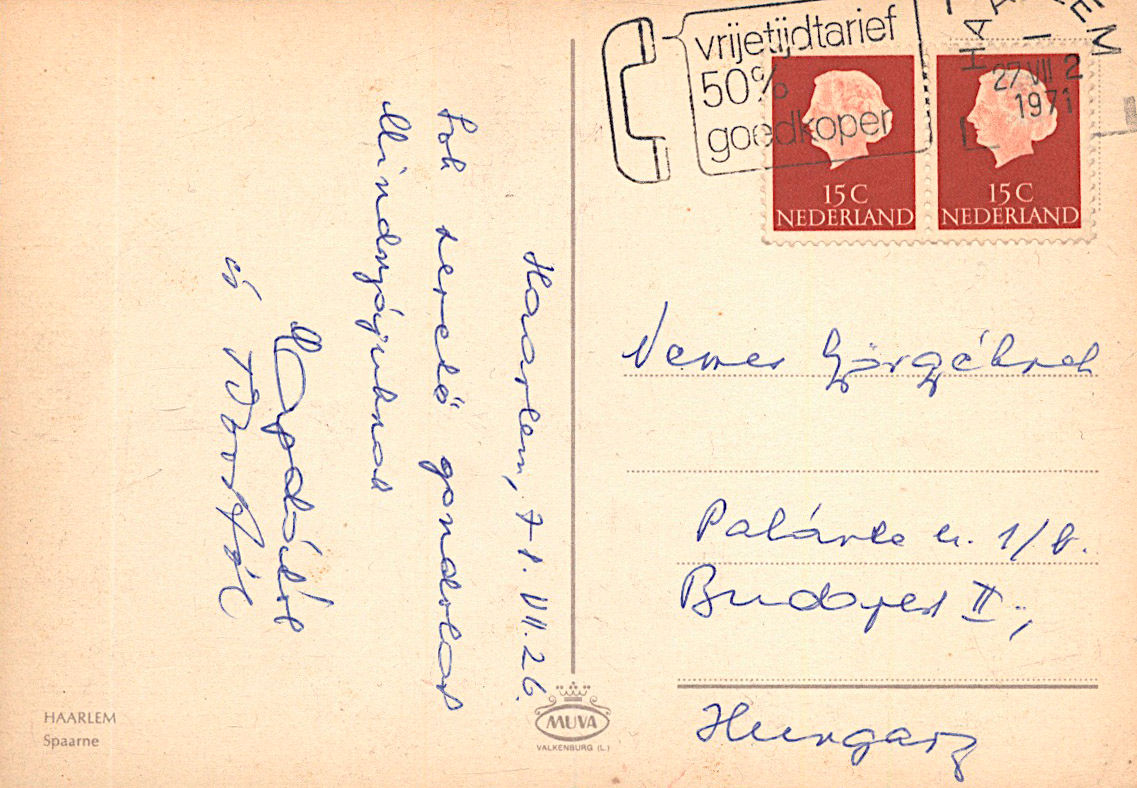 Haarlem, 71. VII. 26.
Sok szerető gondolat
Mindnyájuknak
Apádéktól
és
HAARLEM
Spaarne
MUVA
VALKENBURG (L.)
vrijetijdtarief
50%
goedkoper
HAARLEM
27 VII 2
1971
15 C
NEDERLAND
15 C
NEDERLAND
Nemes Györgyéknek
Palánta u. 1/b.
Budapest II.,
Hungary